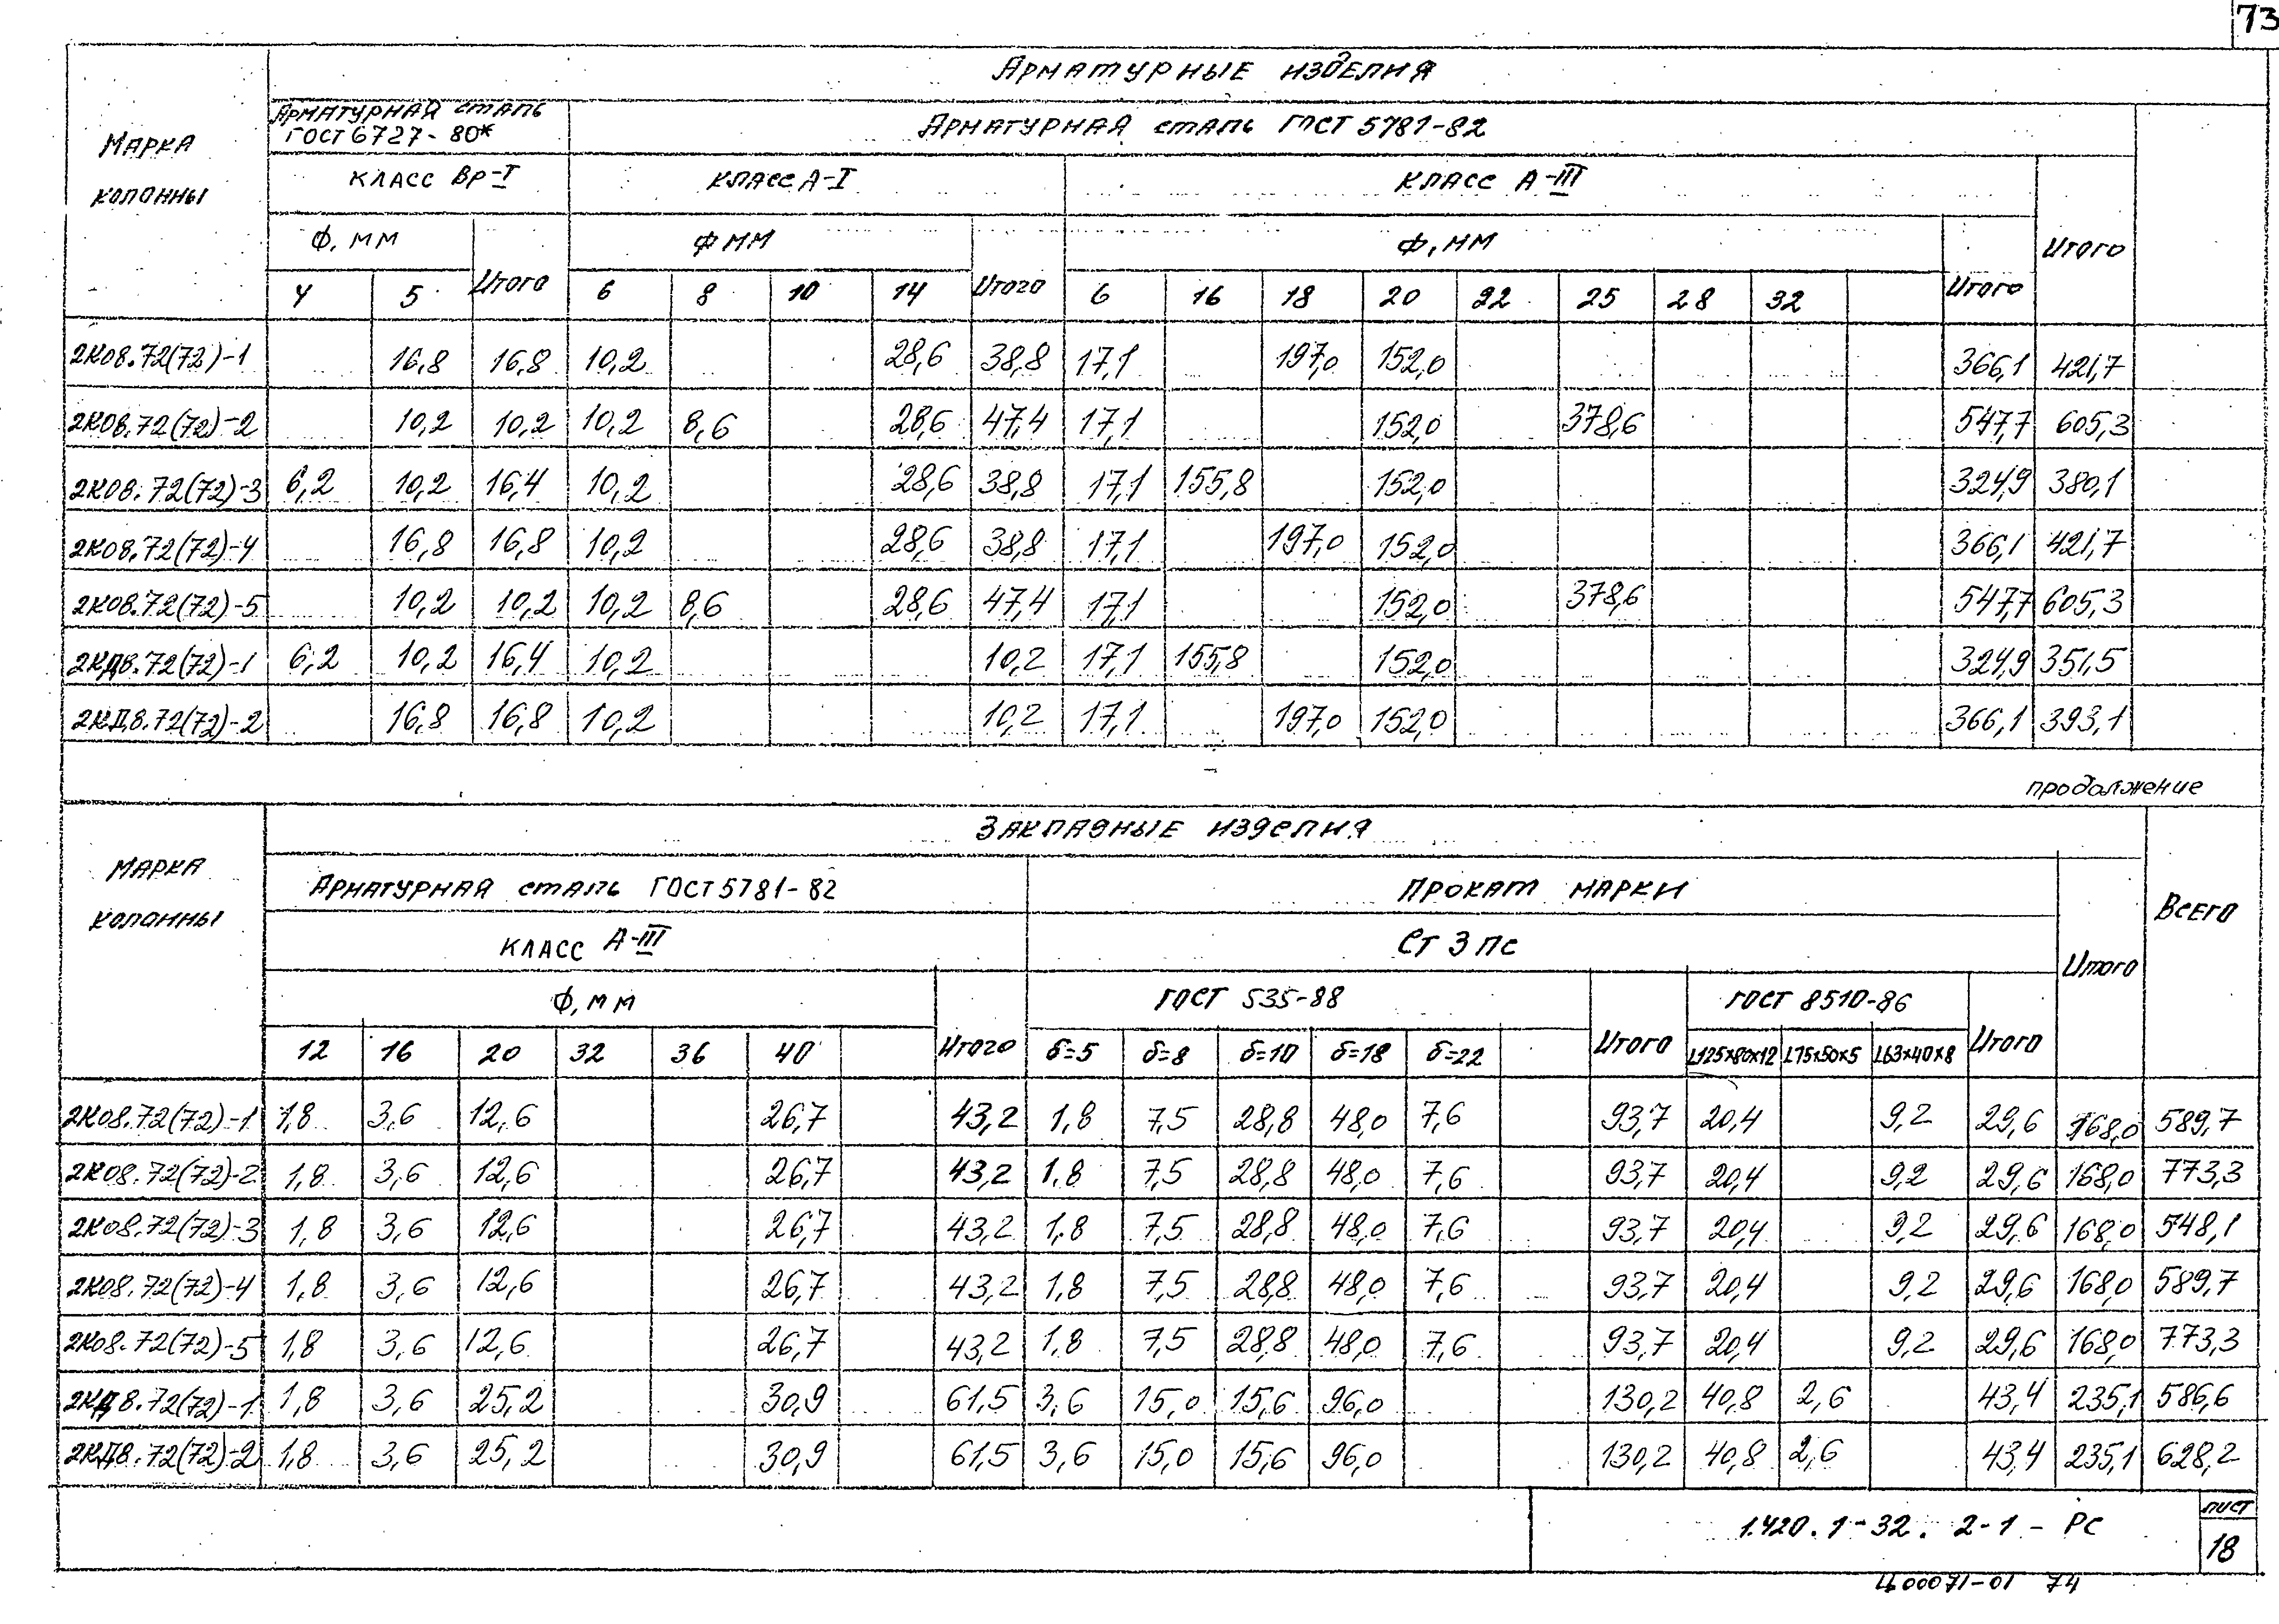 73
Арматурные изделия
Марка колонны
Арматурная сталь ГОСТ 6727-80*
Арматурная сталь ГОСТ 5781-82
Класс Вр-I
Класс А-I
Класс А-III
Итого
Ф, мм
Итого
Ф мм
Итого
Ф, мм
Итого
4 5 6 8 10 14 6 16 18 20 22 25 28 32
2КО8.72(72)-1 16,8 16,8 10,2 28,6 38,8 17,1 197,0 152,0 366,1 421,7
2КО8.72(72)-2 10,2 10,2 10,2 8,6 28,6 47,4 17,1 152,0 378,6 547,7 605,3
2КО8.72(72)-3 6,2 10,2 16,4 10,2 28,6 38,8 17,1 155,8 152,0 324,9 380,1
2КО8.72(72)-4 16,8 16,8 10,2 28,6 38,8 17,1 197,0 152,0 366,1 421,7
2КО8.72(72)-5 10,2 10,2 10,2 8,6 28,6 47,4 17,1 152,0 378,6 547,7 605,3
2КД8.72(72)-1 6,2 10,2 16,4 10,2 10,2 17,1 155,8 152,0 324,9 351,5
2КД8.72(72)-2 16,8 16,8 10,2 10,2 17,1 197,0 152,0 366,1 393,1
продолжение
Закладные изделия
Марка колонны
Арматурная сталь ГОСТ 5781-82
Прокат марки
Всего
Класс А-III
Ст 3 пс
Итого
Ф, мм
Итого
ГОСТ 535-88
Итого
ГОСТ 8510-86
Итого
12 16 20 32 36 40 δ=5 δ=8 δ=10 δ=18 δ=22 L125х80х12 L75х50х5 L63х40х8
2КО8.72(72)-1 1,8 3,6 12,6 26,7 43,2 1,8 7,5 28,8 48,0 7,6 93,7 20,4 9,2 29,6 168,0 589,7
2КО8.72(72)-2 1,8 3,6 12,6 26,7 43,2 1,8 7,5 28,8 48,0 7,6 93,7 20,4 9,2 29,6 168,0 773,3
2КО8.72(72)-3 1,8 3,6 12,6 26,7 43,2 1,8 7,5 28,8 48,0 7,6 93,7 20,4 9,2 29,6 168,0 548,1
2КО8.72(72)-4 1,8 3,6 12,6 26,7 43,2 1,8 7,5 28,8 48,0 7,6 93,7 20,4 9,2 29,6 168,0 589,7
2КО8.72(72)-5 1,8 3,6 12,6 26,7 43,2 1,8 7,5 28,8 48,0 7,6 93,7 20,4 9,2 29,6 168,0 773,3
2КД8.72(72)-1 1,8 3,6 25,2 30,9 61,5 3,6 15,0 15,6 96,0 130,2 40,8 2,6 43,4 235,1 586,6
2КД8.72(72)-2 1,8 3,6 25,2 30,9 61,5 3,6 15,0 15,6 96,0 130,2 40,8 2,6 43,4 235,1 628,2
1.420.1-32. 2-1 - РС
лист
18
Ц00071-01 74